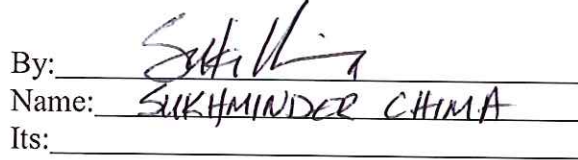 By:
Name: SUKHMINDER CHIMA
Its: